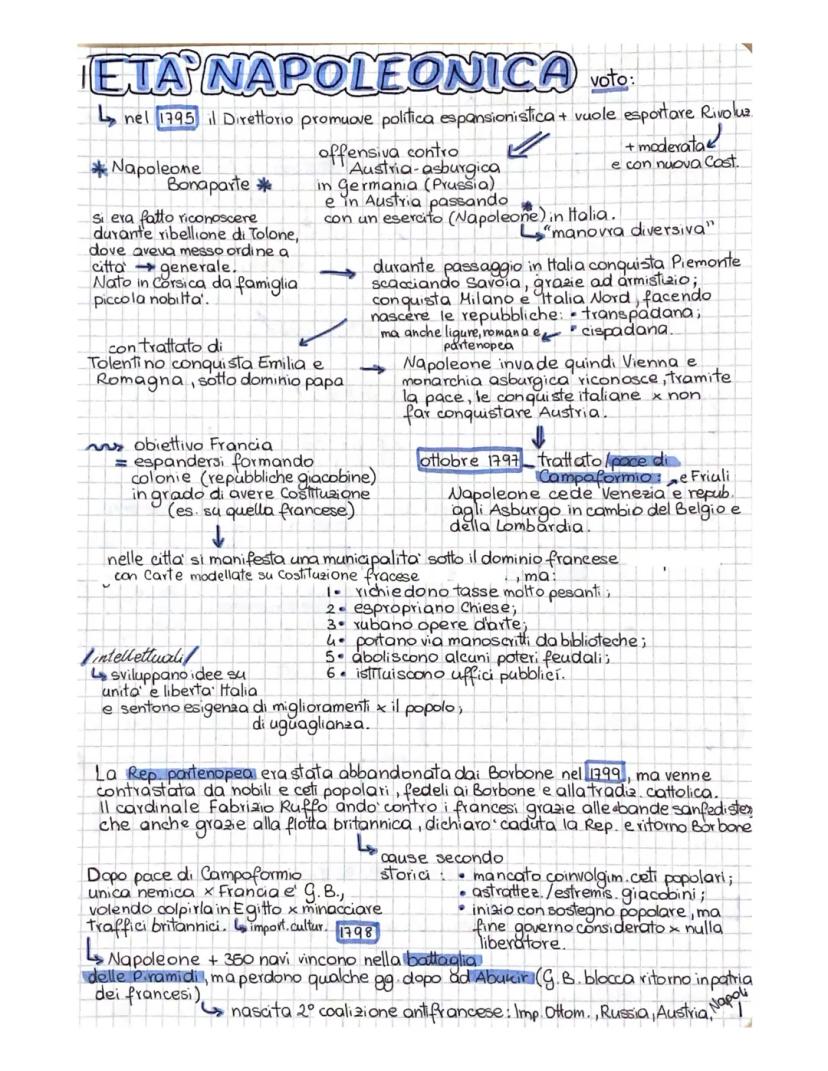 ETA' NAPOLEONICA voto:
↳ nel 1795 il Direttorio promuove politica espansionistica + vuole esportare Rivoluz.
+ moderata
e con nuova Cost.
offensiva contro
Austria-asburgica
in Germania (Prussia)
e in Austria passando
con un esercito (Napoleone) in Italia.
↳ "manovra diversiva"
* Napoleone
Bonaparte *
si era fatto riconoscere
durante ribellione di Tolone,
dove aveva messo ordine a
citta' → generale.
Nato in Corsica da famiglia
piccola nobilta'.
→ durante passaggio in Italia conquista Piemonte
scacciando Savoia, grazie ad armistizio;
conquista Milano e Italia Nord, facendo
nascere le repubbliche: • transpadana;
ma anche ligure, romana e • cispadana.
partenopea
con trattato di
Tolentino conquista Emilia e
Romagna, sotto dominio papa
→ Napoleone invade quindi Vienna e
monarchia asburgica riconosce, tramite
la pace, le conquiste italiane x non
far conquistare Austria.
obiettivo Francia
= espandersi formando
colonie (repubbliche giacobine)
in grado di avere Costituzione
(es. su quella francese)
ottobre 1797 trattato/pace di
Campoformio: e Friuli
Napoleone cede Venezia e repub.
agli Asburgo in cambio del Belgio e
della Lombardia.
nelle citta' si manifesta una municipalita' sotto il dominio francese
con Carte modellate su Costituzione fracese , ma:
1• richiedono tasse molto pesanti;
2• espropriano Chiese;
3• rubano opere d'arte;
4• portano via manoscritti da biblioteche;
5• aboliscono alcuni poteri feudali;
6• istituiscono uffici pubblici.
/intellettuali/
↳ sviluppano idee su
unita' e liberta' Italia
e sentono esigenza di miglioramenti x il popolo,
di uguaglianza.
La Rep. partenopea era stata abbandonata dai Borbone nel 1799, ma venne
contrastata da nobili e ceti popolari, fedeli ai Borbone e alla tradiz. cattolica.
Il cardinale Fabrizio Ruffo ando' contro i francesi grazie alle bande sanfediste,
che anche grazie alla flotta britannica, dichiaro' caduta la Rep. e ritorno Borbone
↳ cause secondo
storici: • mancato coinvolgim. ceti popolari;
• astrattez./estremis. giacobini;
• inizio con sostegno popolare, ma
fine governo considerato x nulla
liberatore.
Dopo pace di Campoformio
unica nemica x Francia e' G.B.,
volendo colpirla in Egitto x minacciare
traffici britannici. ↳ import. cultur. 1798
↳ Napoleone + 350 navi vincono nella battaglia
delle Piramidi, ma perdono qualche gg. dopo ad Abukir (G.B. blocca ritorno in patria
dei francesi)
↳ nascita 2° coalizione antifrancese: Imp. Ottom., Russia, Austria, Napoli
1